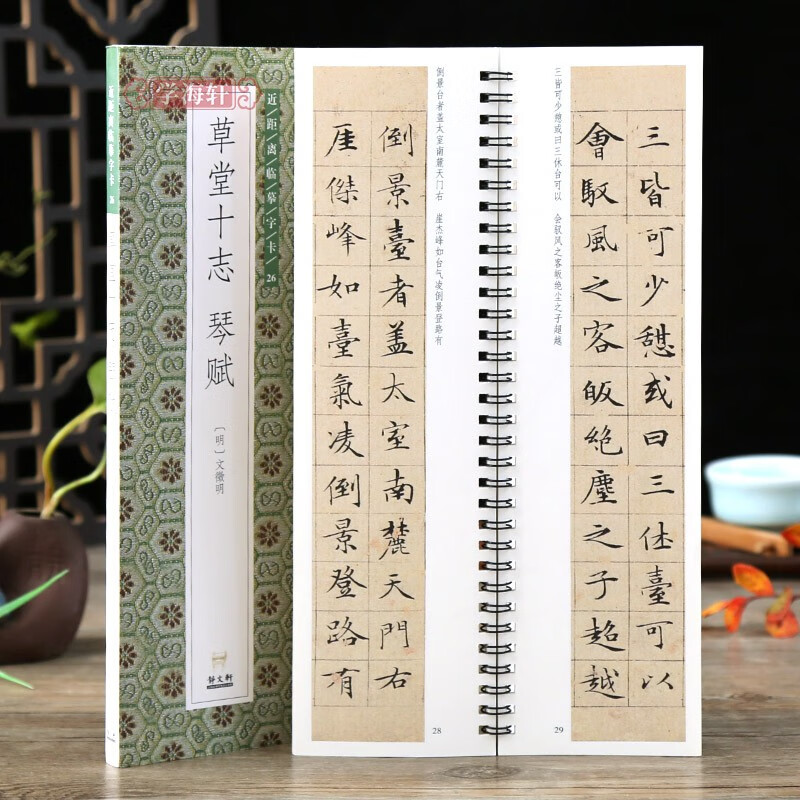 学海轩
近/距/离/临/摹/字/卡/26
草堂十志 琴赋
〔明〕文徵明
靜文軒
倒景台者盖太室南麓天门右 崖杰峰如台气凌倒景登路有
倒景臺者盖太室南麓天門右
厓傑峰如臺氣凌倒景登路有
28
三皆可少憩或曰三休台可以 会驭风之客皈绝尘之子超越
三皆可少憇或曰三休臺可以
會馭風之客皈絶塵之子超越
29